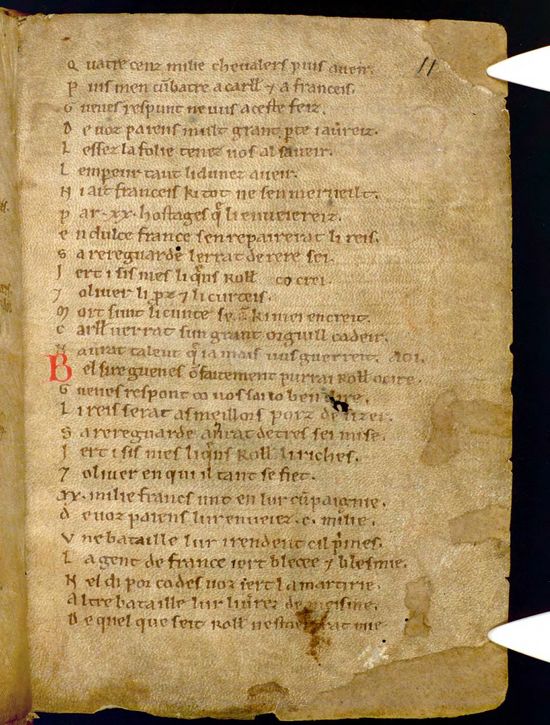 11
Q uatre cenz milie chevalers puis aveir.
P uis men cūbatre a carłł ⁊ a franceis.
G uenes respunt ne vus a ceste feiz.
D e voz paiens mult grant pte i avreiz.
L essez la folie tenez vos al saveir.
L empeur tant li dunez aveir.
N i ait franceis ki tot ne sen merveilt.
P ar .xx. hostages q̄ li enveiereiz.
E n dulce france sen repairerat li reis.
S a rereguarde lerrat derere sei.
I ert i sis nies li q̄ns Rołł co crei.
⁊ oliver li pz ⁊ li curteis.
M ort sunt li cunte se est ki mei en creit.
C arłł verrat sun grant orguill cadeir.
N avrat talent q̄ ia mais vus guerreit. AOI.
B el sire guenes faitement purrai Rołł ocire.
G uenes respont co vos sai io ben dire.
L i reis serat as meillors porz de sizer.
S a rereguarde avrat detres sei mise.
I ert i sis nies li q̄ns Rołł li riches.
⁊ oliver en qui il tant se fiet.
.XX. milie francs unt en lur cūpaignie.
D e voz paiens lur enveiez .c. milie.
V ne bataille lur i rendent cil pimes.
L a gent de france iert blecee ⁊ blesmie.
N el di por co des voz iert la martirie.
A ltre bataille lur livrez de meisme.
D e quel que seit Rołł nestoertrat mie